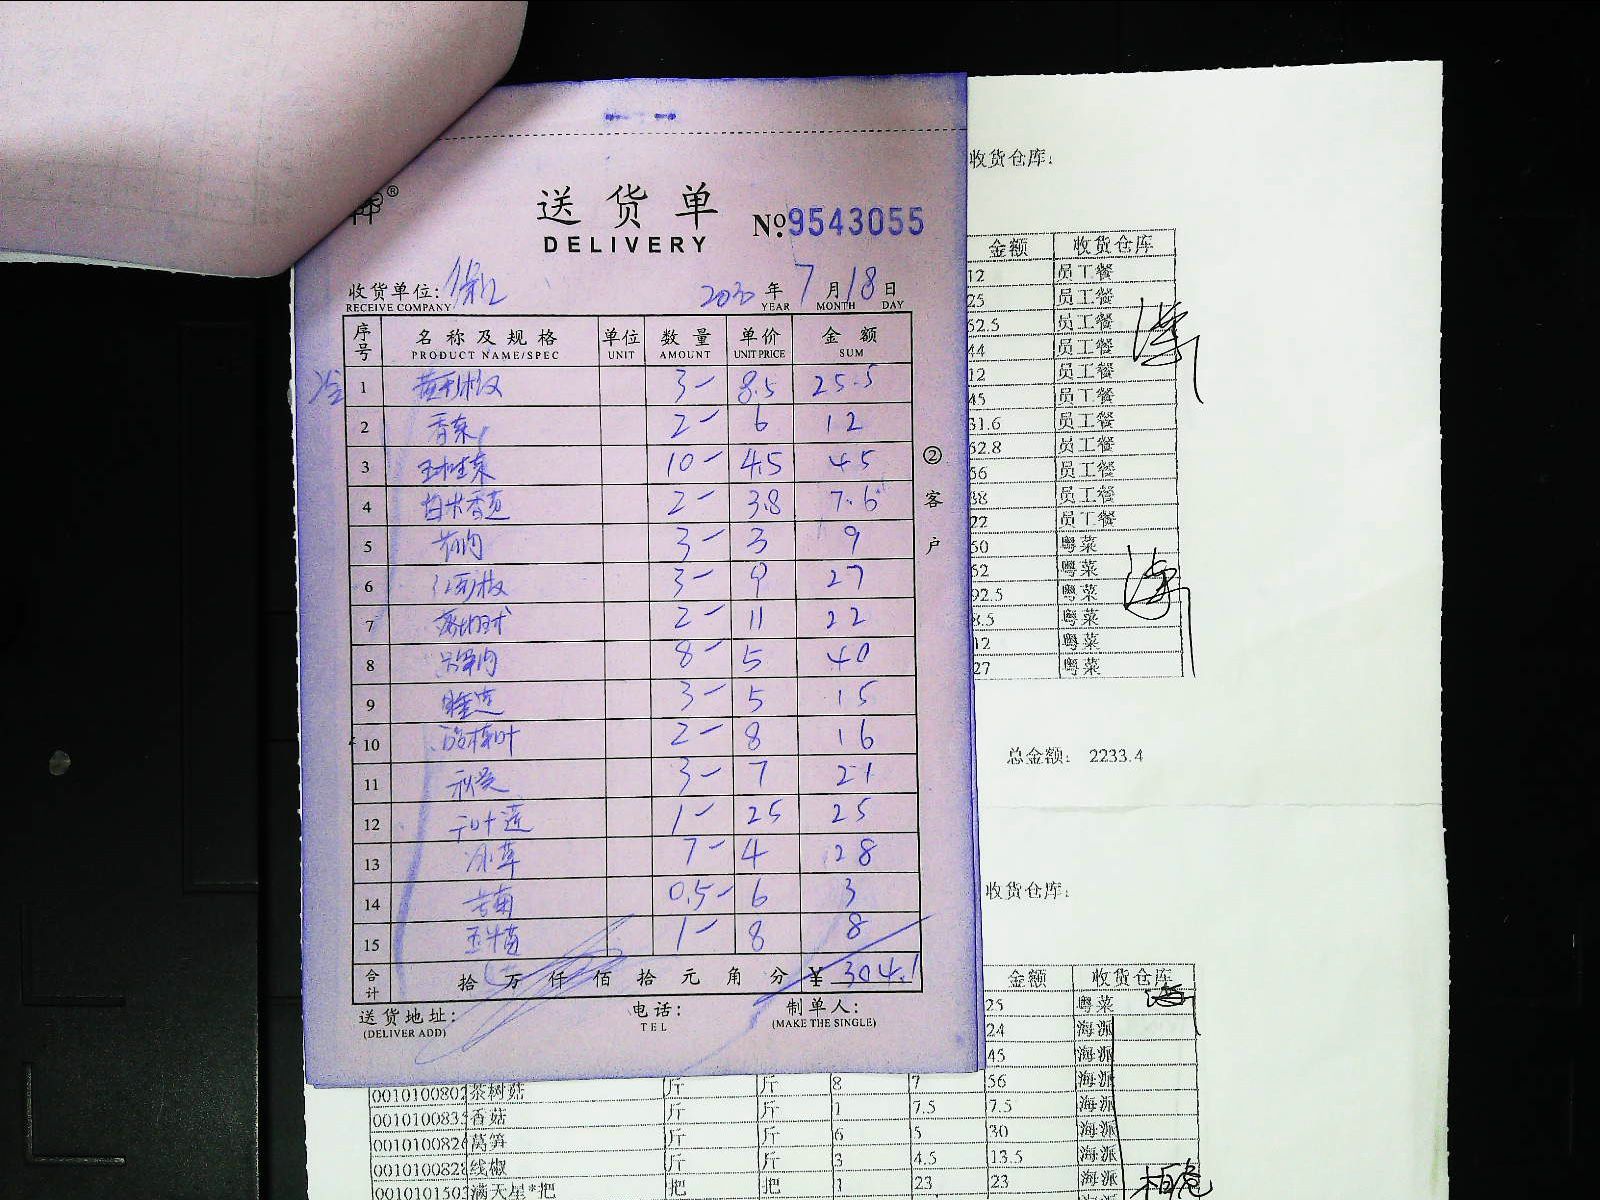 送货单
DELIVERY
№9543055
收货单位:
RECEIVE COMPANY
年 7 月 18 日
YEAR MONTH DAY
序号 名称及规格 单位 数量 单价 金额
PRODUCT NAME/SPEC UNIT AMOUNT UNIT PRICE SUM
1 黄彩椒 3 8.5 25.5
2 香菜 2 6 12
3 10 4.5 45
4 2 3.8 7.6
5 3 3 9
6 红彩椒 3 9 27
7 2 11 22
8 8 5 40
9 3 5 15
10 2 8 16
11 秋葵 3 7 21
12 1 25 25
13 冰草 7 4 28
14 0.5 6 3
15 1 8 8
合计 拾 万 仟 佰 拾 元 角 分 ¥ 304.1
送货地址:
(DELIVER ADD)
电话:
TEL
制单人:
(MAKE THE SINGLE)
② 客户
收货仓库:
金额 收货仓库
12 员工餐
25 员工餐
52.5 员工餐
44 员工餐
12 员工餐
45 员工餐
31.6 员工餐
52.8 员工餐
56 员工餐
38 员工餐
22 员工餐
50 粤菜
52 粤菜
92.5 粤菜
8.5 粤菜
12 粤菜
27 粤菜
总金额: 2233.4
收货仓库:
金额 收货仓库
25 粤菜
24 海派
45 海派
0010100802 茶树菇 斤 斤 8 7 56 海派
001010083 香菇 斤 斤 1 7.5 7.5 海派
001010082 莴笋 斤 斤 6 5 30 海派
0010100828 线椒 斤 斤 3 4.5 13.5 海派
001010150 满天星*把 把 把 1 23 23 海派